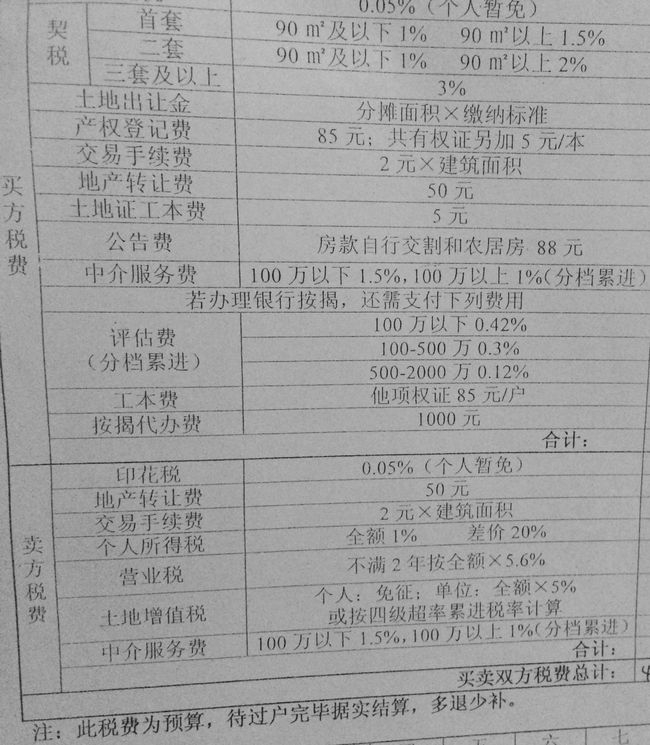 0.05%（个人暂免）
契税
首套 90㎡及以下1% 90㎡以上1.5%
二套 90㎡及以下1% 90㎡以上2%
三套及以上 3%
土地出让金 分摊面积×缴纳标准
产权登记费 85元；共有权证另加5元/本
交易手续费 2元×建筑面积
买方税费
地产转让费 50元
土地证工本费 5元
公告费 房款自行交割和农居房 88元
中介服务费 100万以下1.5%,100万以上1%(分档累进)
若办理银行按揭，还需支付下列费用
评估费
（分档累进）
100万以下0.42%
100-500万0.3%
500-2000万0.12%
工本费 他项权证85元/户
按揭代办费 1000元
合计：
印花税 0.05%（个人暂免）
地产转让费 50元
交易手续费 2元×建筑面积
卖方税费
个人所得税 全额1% 差价20%
营业税 不满2年按全额×5.6%
土地增值税 个人：免征；单位：全额×5%
或按四级超率累进税率计算
中介服务费 100万以下1.5%,100万以上1%(分档累进)
合计：
买卖双方税费总计：
注：此税费为预算，待过户完毕据实结算，多退少补。
五 六 七